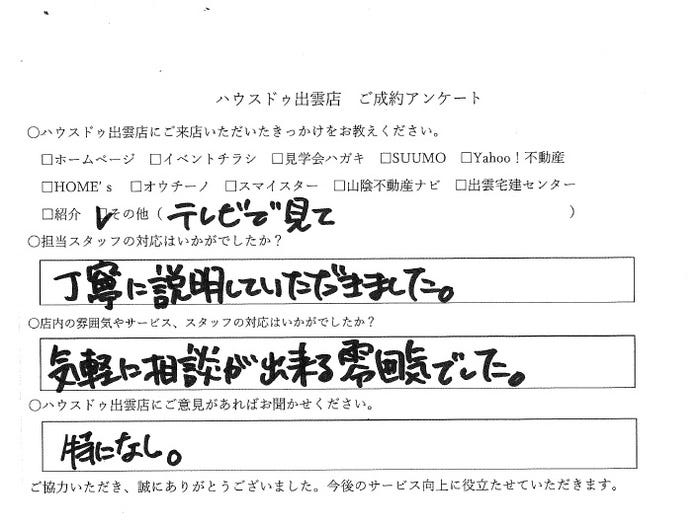 ハウスドゥ出雲店　ご成約アンケート
○ハウスドゥ出雲店にご来店いただいたきっかけをお教えください。
□ホームページ　□イベントチラシ　□見学会ハガキ　□SUUMO　□Yahoo！不動産
□HOME's　□オウチーノ　□スマイスター　□山陰不動産ナビ　□出雲宅建センター
□紹介　☑その他（テレビで見て）
○担当スタッフの対応はいかがでしたか？
丁寧に説明していただきました。
○店内の雰囲気やサービス、スタッフの対応はいかがでしたか？
気軽に相談が出来る雰囲気でした。
○ハウスドゥ出雲店にご意見があればお聞かせください。
特になし。
ご協力いただき、誠にありがとうございました。今後のサービス向上に役立たせていただきます。